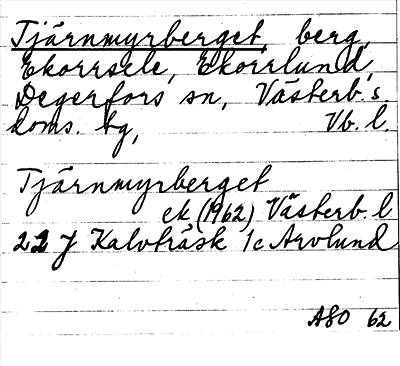 Tjärnmyrberget, berg,
Ekorrsele, Ekorrlund,
Degerfors sn, Västerb:s
doms. tg, Vb. l.
Tjärnmyrberget
ek (1962) Västerb. l
22 J Kalvträsk 1c Arvlund
ASO 62